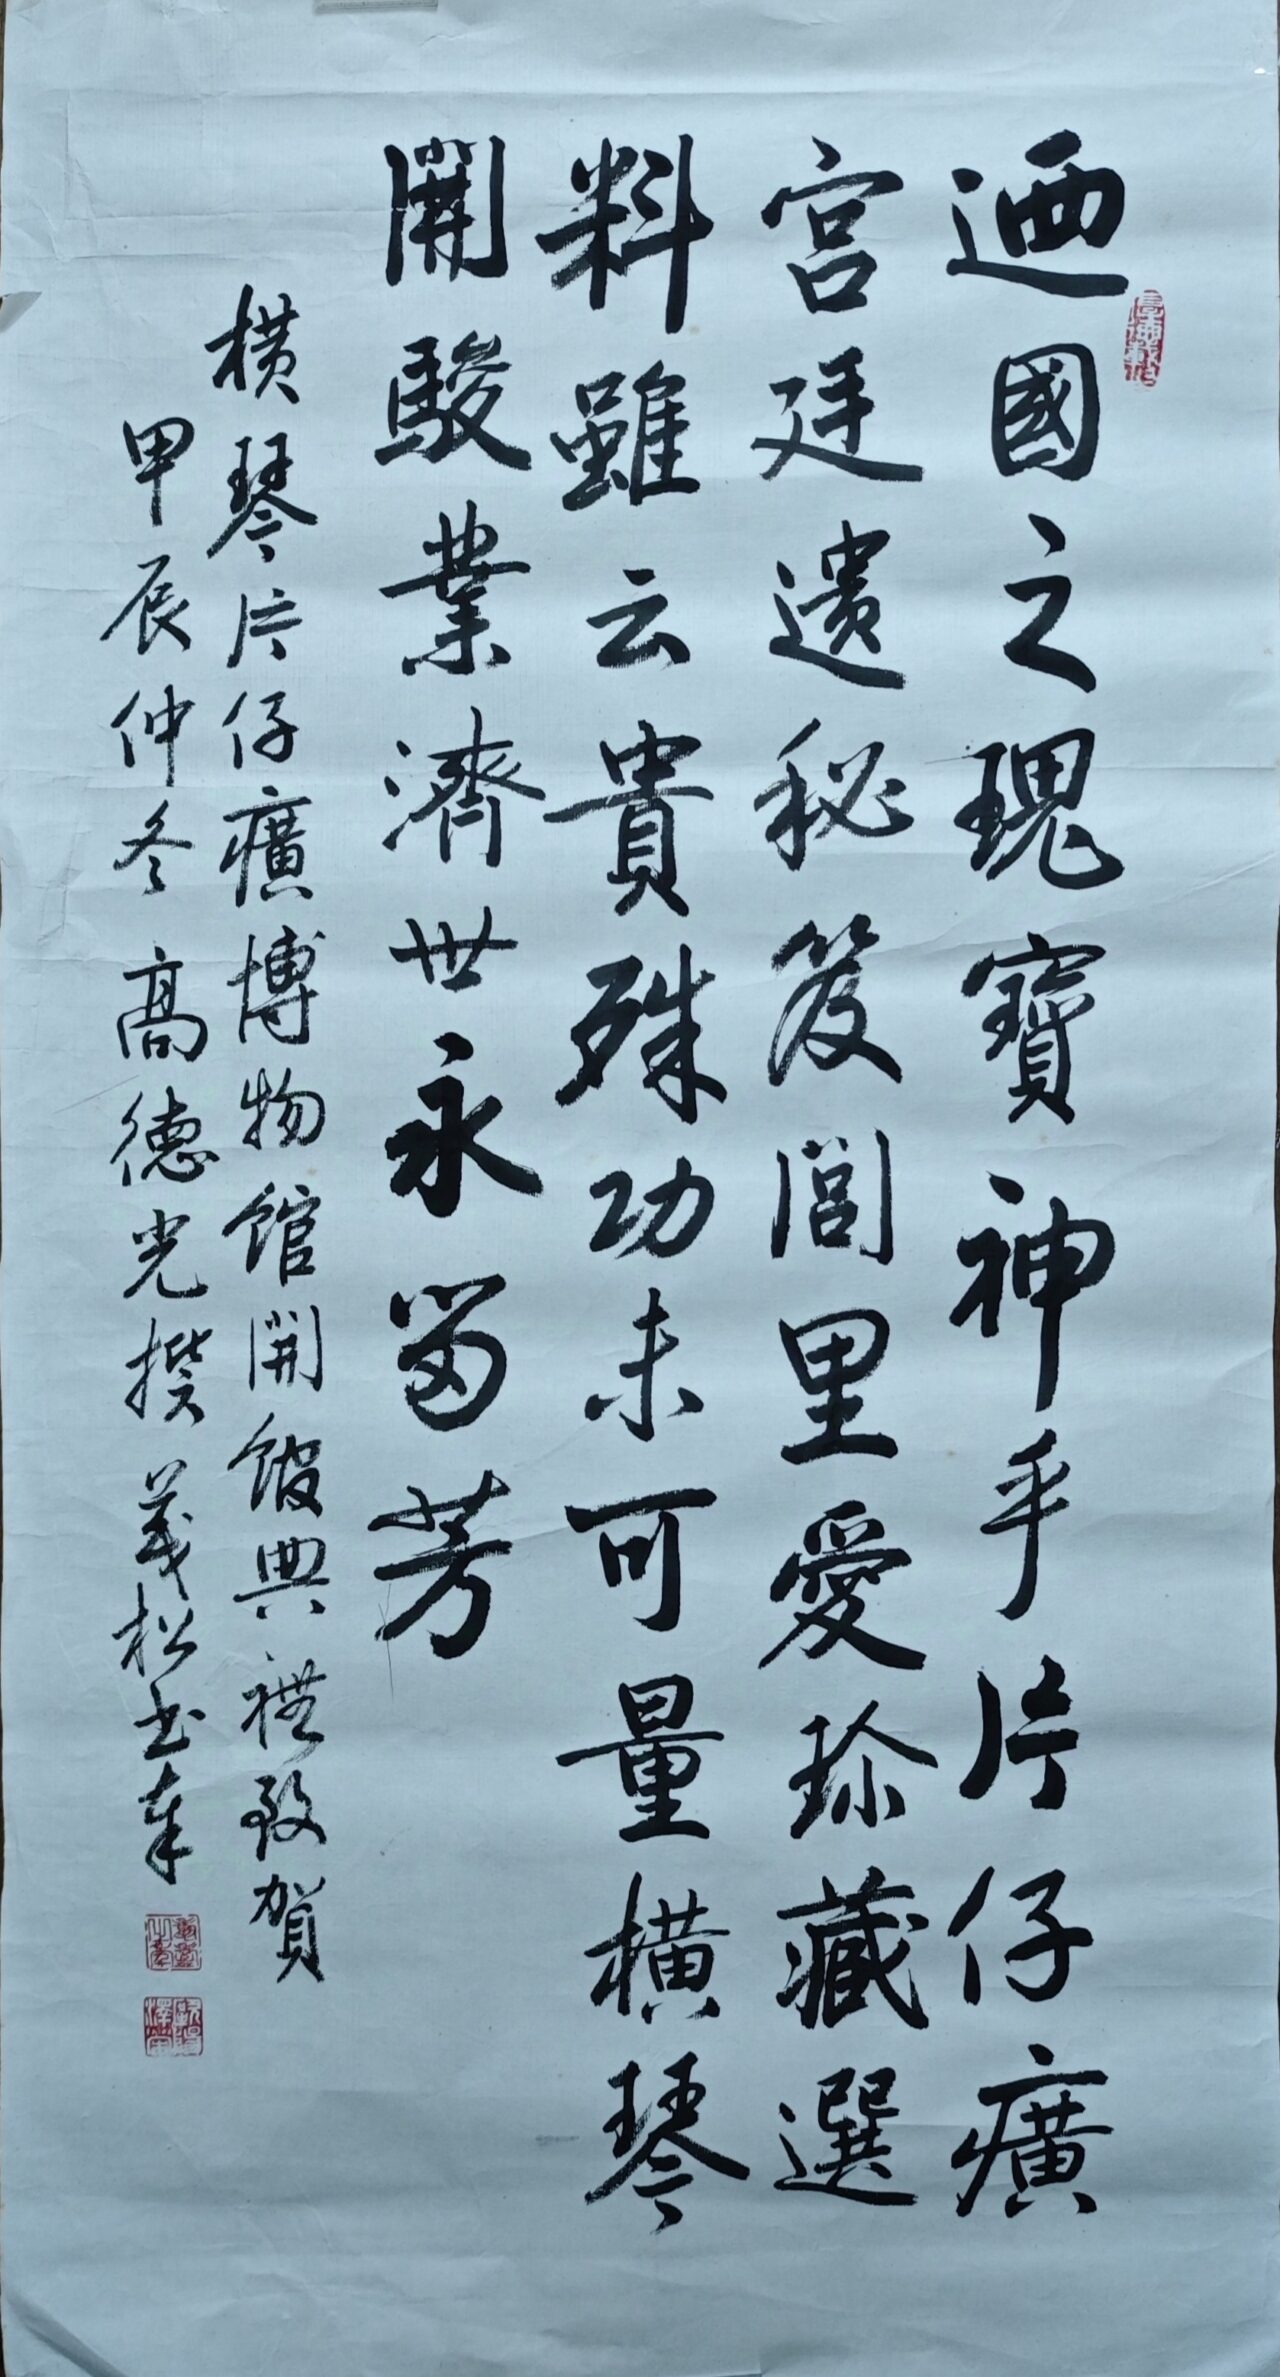 迺國之瑰寶神乎片仔癀
宮廷遺秘笈閭里愛珍藏選
料雖云貴殊功未可量橫琴
開駿業濟世永留芳
橫琴片仔癀博物館開館典禮致賀
甲辰仲冬高德光撰義松书奉